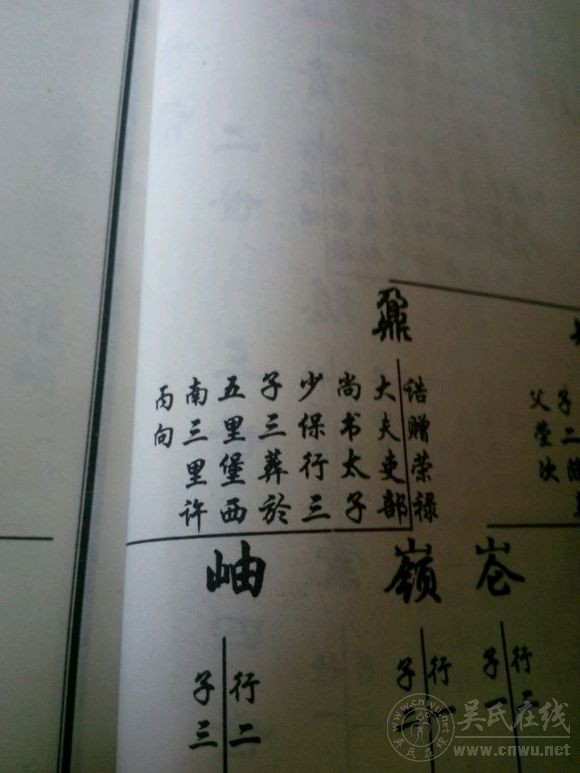 子二
父茔次
鼐
诰赠荣禄
大夫吏部
尚书太子
少保行三
子三葬於
五里堡西
南三里许
丙向
行
子一
嶺
行一
子
岫
行二
子三
吴氏在线
www.cnwu.net